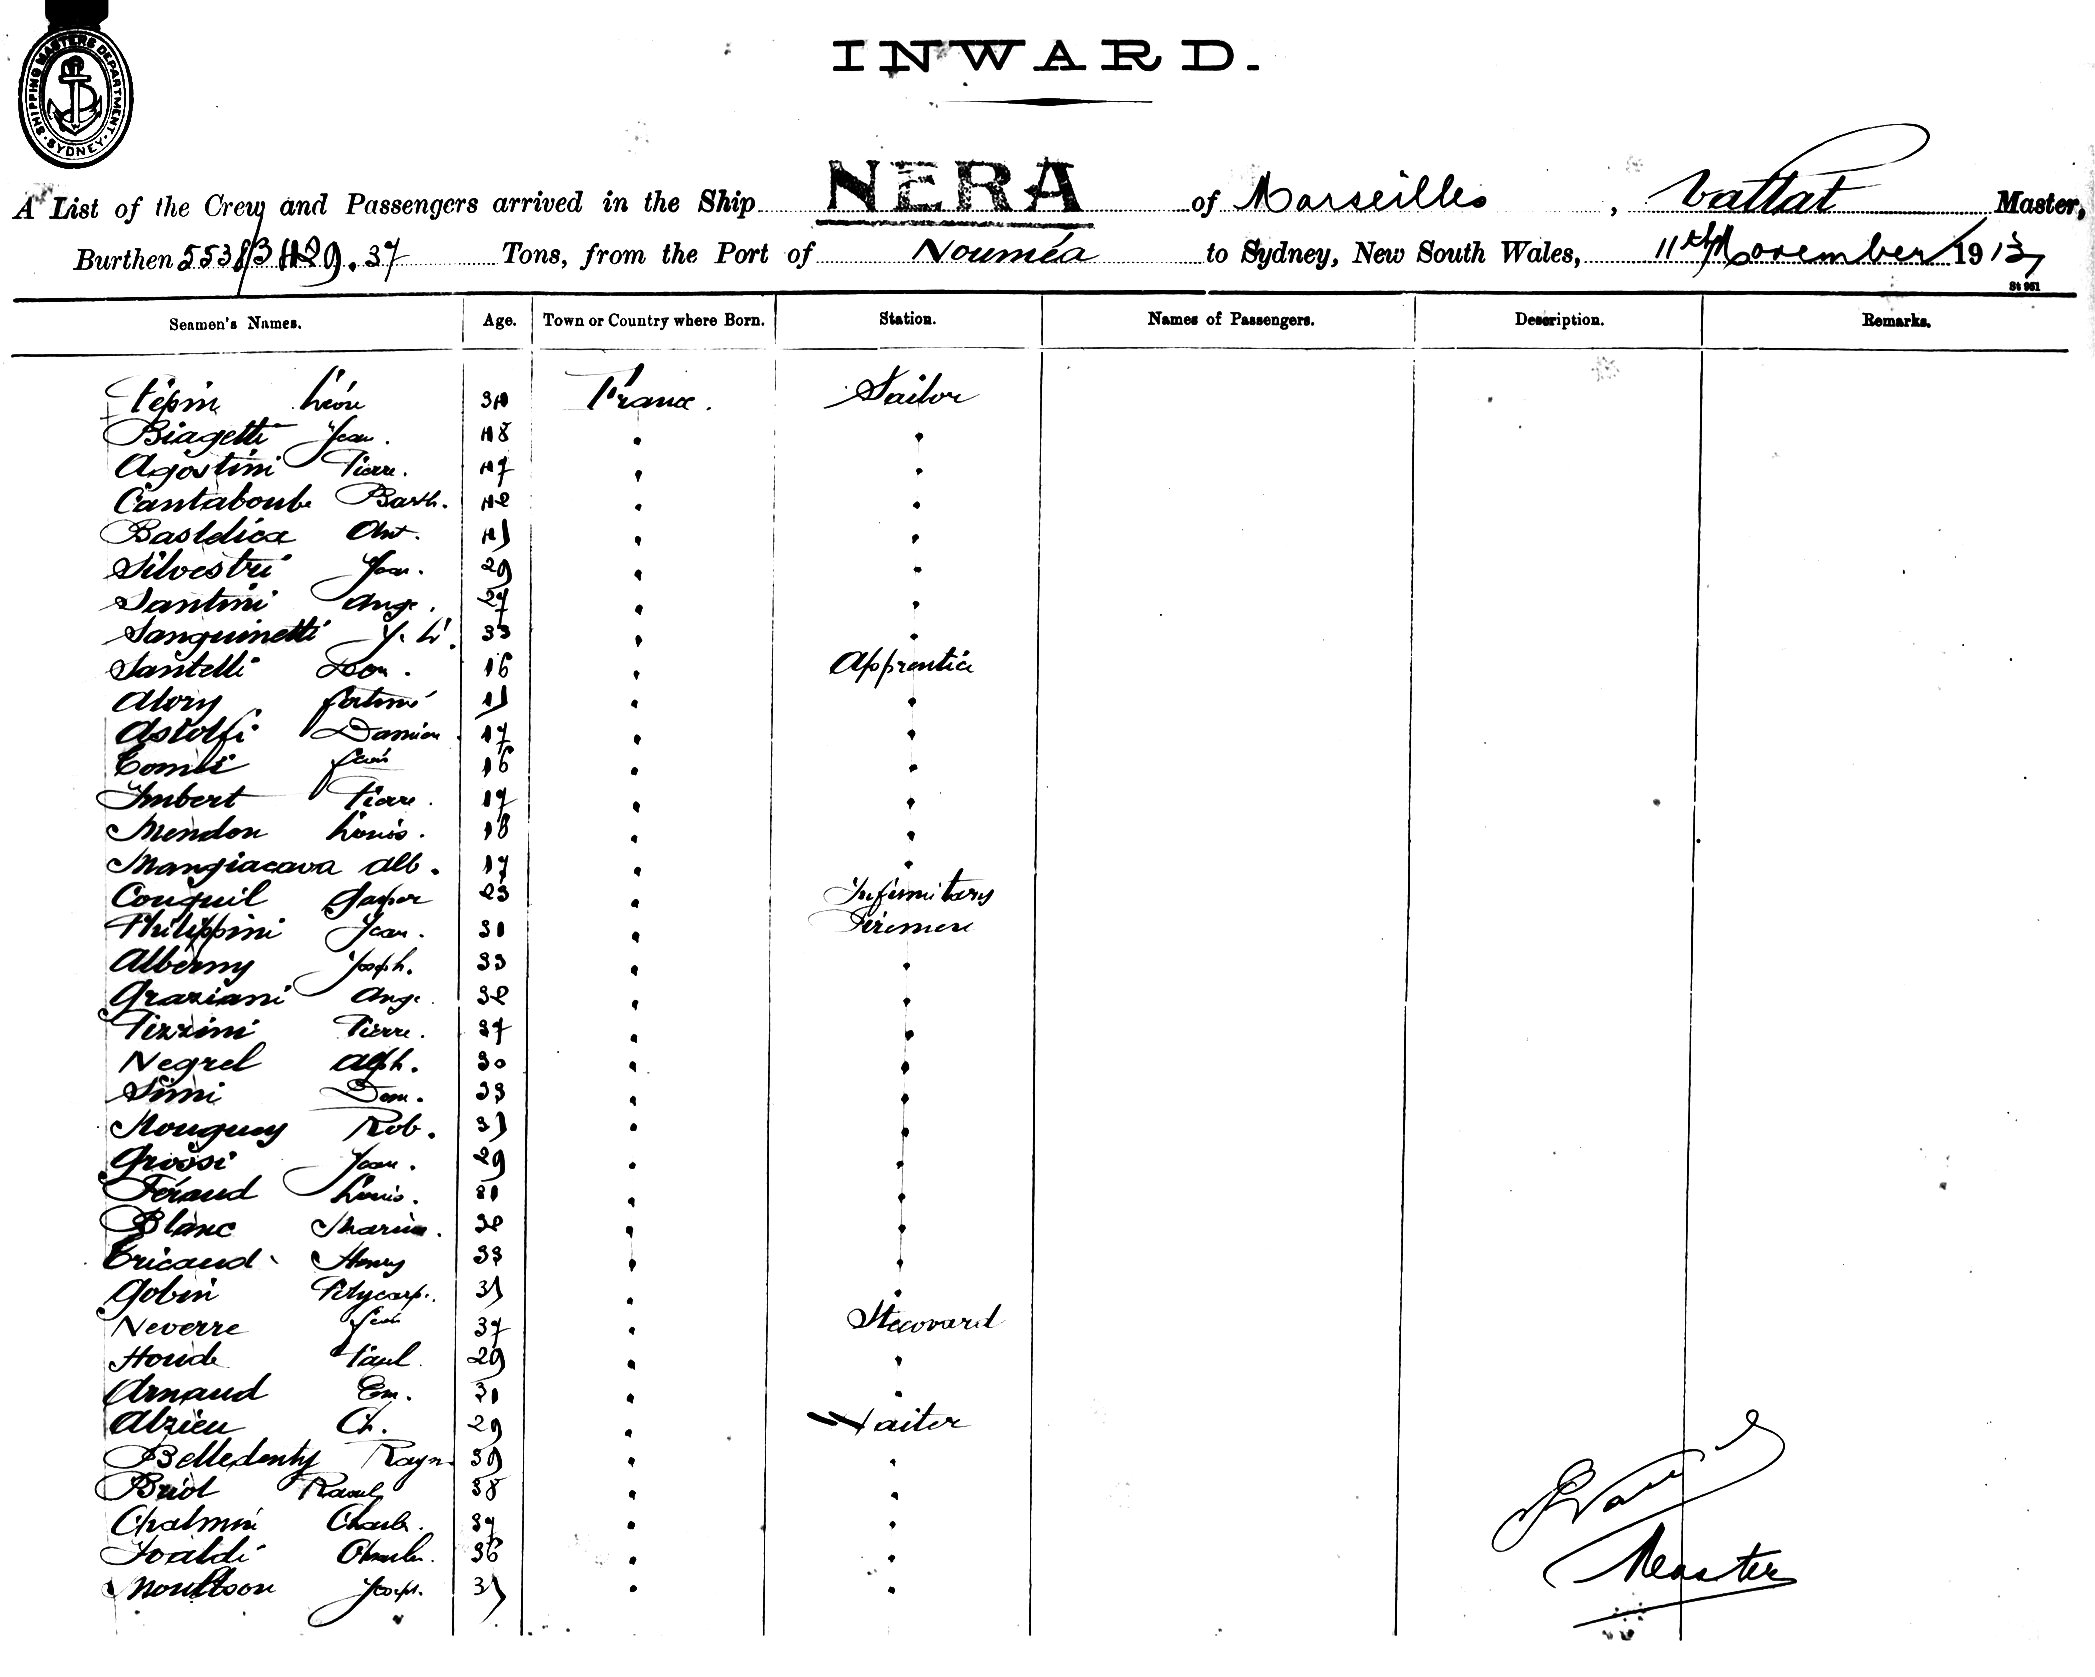 SHIPPING MASTERS DEPARTMENT · SYDNEY ·
INWARD.
A List of the Crew and Passengers arrived in the Ship NERA of Marseilles, Vattat Master,
Burthen 5538/3 Tons, from the Port of Nouméa to Sydney, New South Wales, 11th November 1913
St 961
Seamen's Names. Age. Town or Country where Born. Station. Names of Passengers. Description. Remarks.
Pépin Léon France. Sailor
Biagetti Jean. 48
Agostini Pierre. 47
Cantaboube Barth. 42
Bastelica Ant. 45
Silvestri Jean. 29
Santini Ange. 27
Sanguinetti J. L. 33
Santelli Don. 16 Apprentice
Alory fortuné 15
Astolfi Damien 17
Tomei 16
Imbert Pierre. 17
Mendon Louis. 16
Mangiacava Alb. 17
Couquil Gaspar 23 Infirmitary
Philippini Jean. 31 Firemen
Alberny Joseph. 33
Graziani Ange. 32
Pizzini Pierre. 37
Negrel Alph. 30
Simi Dom. 33
Mouguey Rob. 35
Grossi Jean. 29
Féraud Louis. 31
Blanc Marius. 32
Tricaud Henry 33
Gobin Polycarp. 35
Neverre Jean 37 Steward
Houde Paul. 29
Arnaud Em. 31
Alzieu Ch. 29 Waiter
Belledenty Raym. 39
Briol Raoul 38
Chalmin Charles. 37
Joaldi Charles. 36
Moultson Joseph. 35
Master